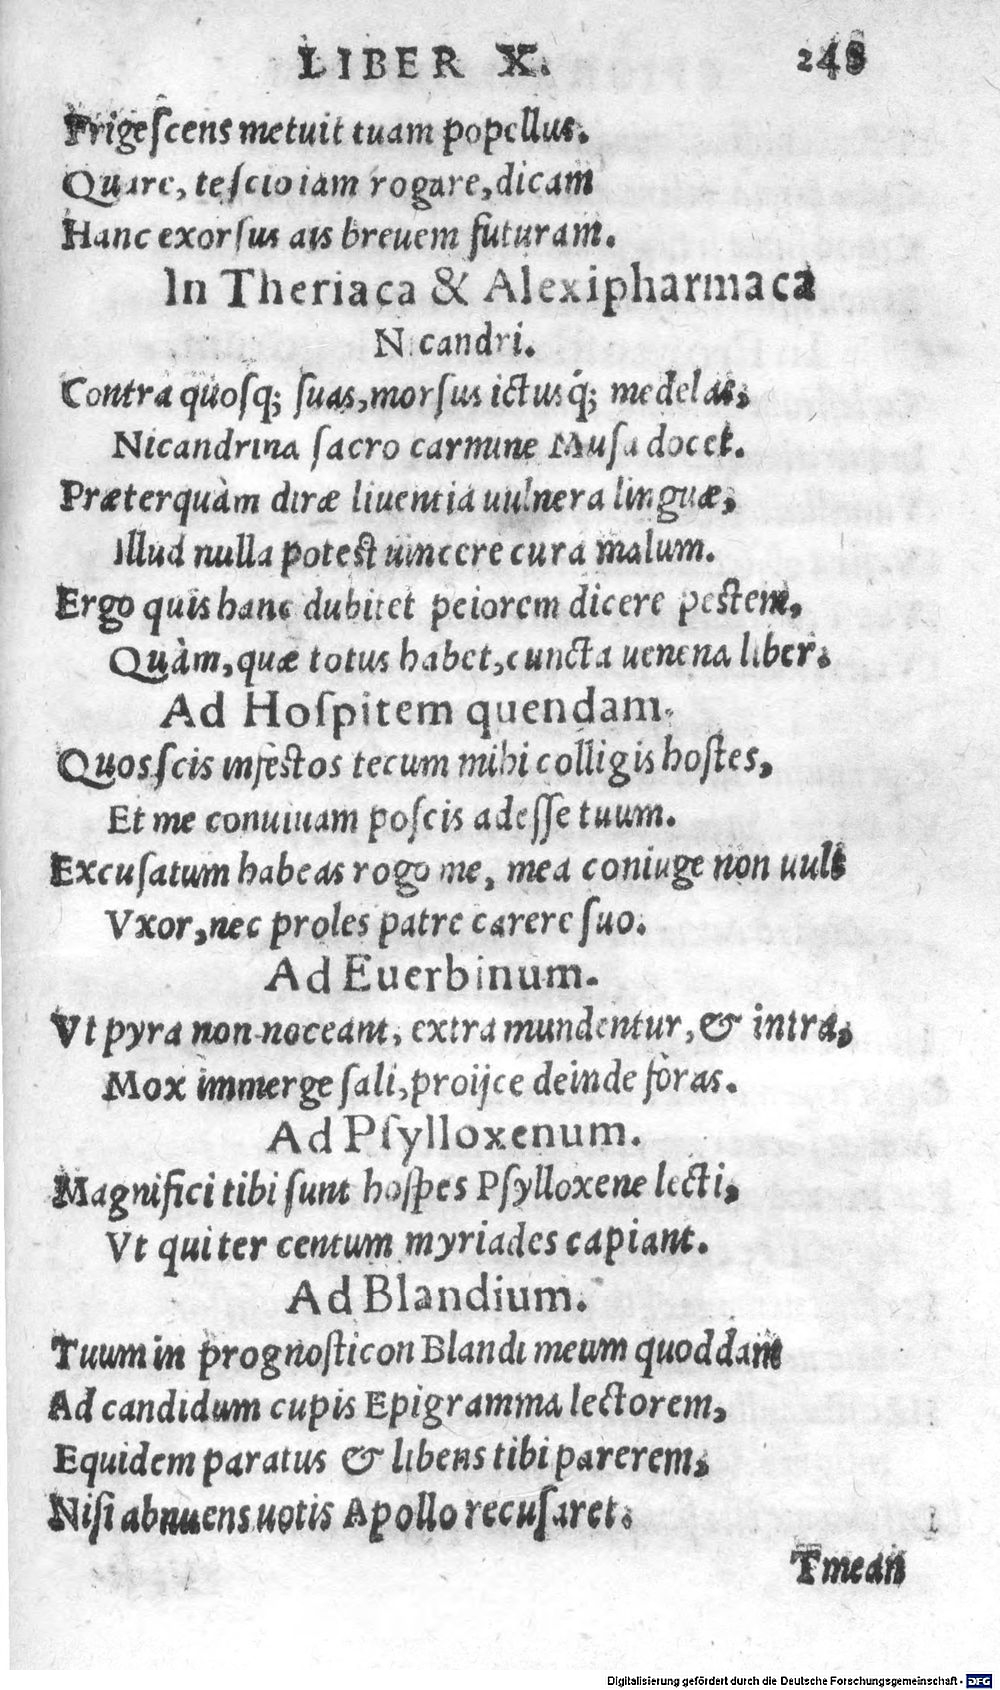 LIBER X. 248
Frigeſcens metuit tuam popellus.
Quare, te ſcio iam rogare, dicam
Hanc exorſus ais breuem futuram.
In Theriaca & Alexipharmaca
Nicandri.
Contra quoſq; ſuas, morſus ictusq́; medelas,
Nicandrina ſacro carmine Muſa docet.
Præterquàm diræ liuentia uulnera linguæ,
Illud nulla poteſt uincere cura malum.
Ergo quis hanc dubitet peiorem dicere peſtem,
Quàm, quæ totus habet, cuncta uenena liber.
Ad Hoſpitem quendam.
Quos ſcis infeſtos tecum mihi colligis hoſtes,
Et me conuiuam poſcis adeſſe tuum.
Excuſatum habeas rogo me, mea coniuge non uult
Vxor, nec proles patre carere ſuo.
Ad Euerbinum.
Vt pyra non noceant, extra mundentur, & intra,
Mox immerge ſali, proijce deinde fòras.
Ad Pſylloxenum.
Magnifici tibi ſunt hoſpes Pſylloxene lecti,
Vt qui ter centum myriades capiant.
Ad Blandium.
Tuum in prognoſticon Blandi meum quoddam
Ad candidum cupis Epigramma lectorem,
Equidem paratus & libens tibi parerem,
Niſi abnuens uotis Apollo recuſaret.
Tmean
Digitalisierung gefördert durch die Deutsche Forschungsgemeinschaft - DFG